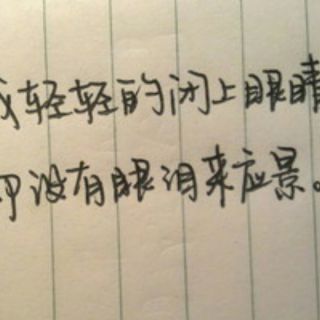 我轻轻的闭上眼睛
却没有眼泪来应景。